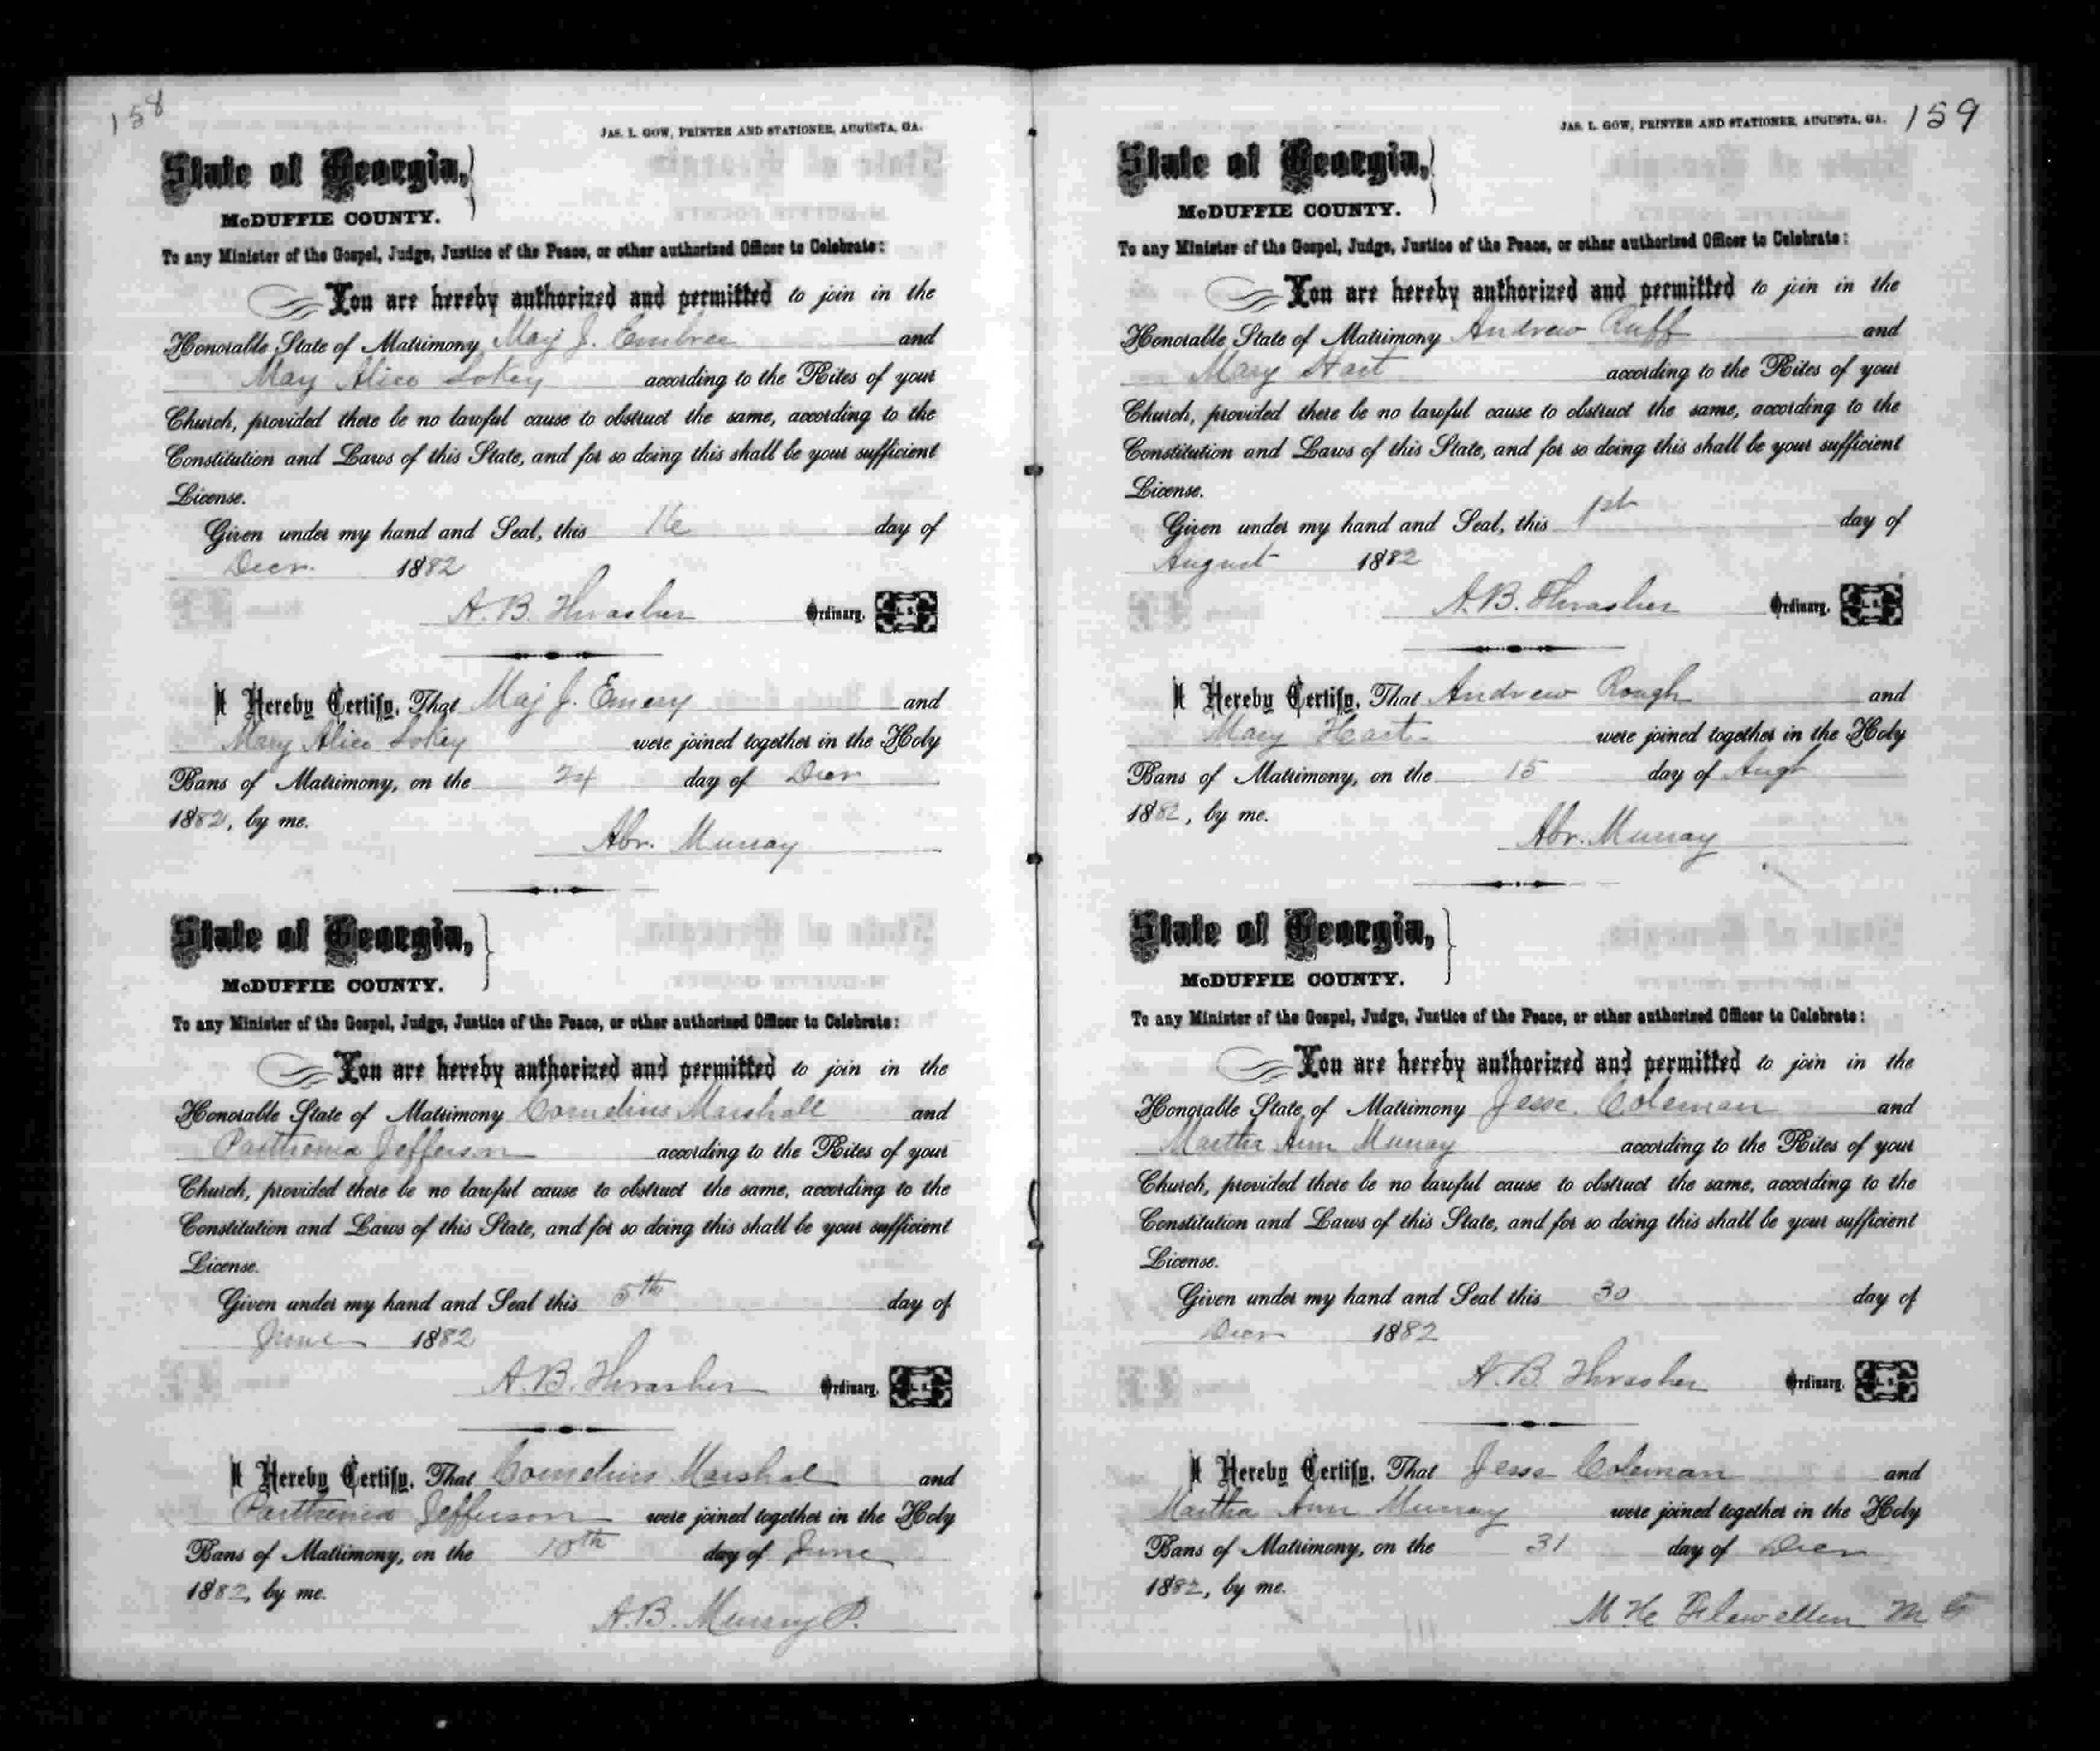 158
JAS. L. GOW, PRINTER AND STATIONER, AUGUSTA, GA.
State of Georgia,
McDUFFIE COUNTY.
To any Minister of the Gospel, Judge, Justice of the Peace, or other authorized Officer to Celebrate:
You are hereby authorized and permitted to join in the
Honorable State of Matrimony Maj J. Embree and
May Alice Lokey according to the Rites of your
Church, provided there be no lawful cause to obstruct the same, according to the
Constitution and Laws of this State, and for so doing this shall be your sufficient
License.
Given under my hand and Seal, this 16 day of
Decr. 1882
A. B. Thrasher Ordinary. L. S.
I Hereby Certify, That Maj J. Emery and
Mary Alice Lokey were joined together in the Holy
Bans of Matrimony, on the 24 day of Decr
1882, by me.
Abr. Murray
State of Georgia,
McDUFFIE COUNTY.
To any Minister of the Gospel, Judge, Justice of the Peace, or other authorized Officer to Celebrate:
You are hereby authorized and permitted to join in the
Honorable State of Matrimony Cornelius Marshall and
Parthenia Jefferson according to the Rites of your
Church, provided there be no lawful cause to obstruct the same, according to the
Constitution and Laws of this State, and for so doing this shall be your sufficient
License.
Given under my hand and Seal this 5th day of
June 1882
A. B. Thrasher Ordinary. L. S.
I Hereby Certify, That Cornelius Marshal and
Parthenia Jefferson were joined together in the Holy
Bans of Matrimony, on the 10th day of June
1882, by me.
A. B. Murray P.
JAS. L. GOW, PRINTER AND STATIONER, AUGUSTA, GA. 159
State of Georgia,
McDUFFIE COUNTY.
To any Minister of the Gospel, Judge, Justice of the Peace, or other authorized Officer to Celebrate:
You are hereby authorized and permitted to join in the
Honorable State of Matrimony Andrew Ruff and
Mary Hart according to the Rites of your
Church, provided there be no lawful cause to obstruct the same, according to the
Constitution and Laws of this State, and for so doing this shall be your sufficient
License.
Given under my hand and Seal, this 1st day of
August 1882
A. B. Thrasher Ordinary. L. S.
I Hereby Certify, That Andrew Rough and
Mary Hart were joined together in the Holy
Bans of Matrimony, on the 15 day of Augt
1882, by me.
Abr. Murray
State of Georgia,
McDUFFIE COUNTY.
To any Minister of the Gospel, Judge, Justice of the Peace, or other authorized Officer to Celebrate:
You are hereby authorized and permitted to join in the
Honorable State of Matrimony Jesse Coleman and
Martha Ann Murray according to the Rites of your
Church, provided there be no lawful cause to obstruct the same, according to the
Constitution and Laws of this State, and for so doing this shall be your sufficient
License.
Given under my hand and Seal this 30 day of
Decr 1882
A. B. Thrasher Ordinary. L. S.
I Hereby Certify, That Jesse Coleman and
Martha Ann Murray were joined together in the Holy
Bans of Matrimony, on the 31 day of Decr
1882, by me.
Flewellen M G